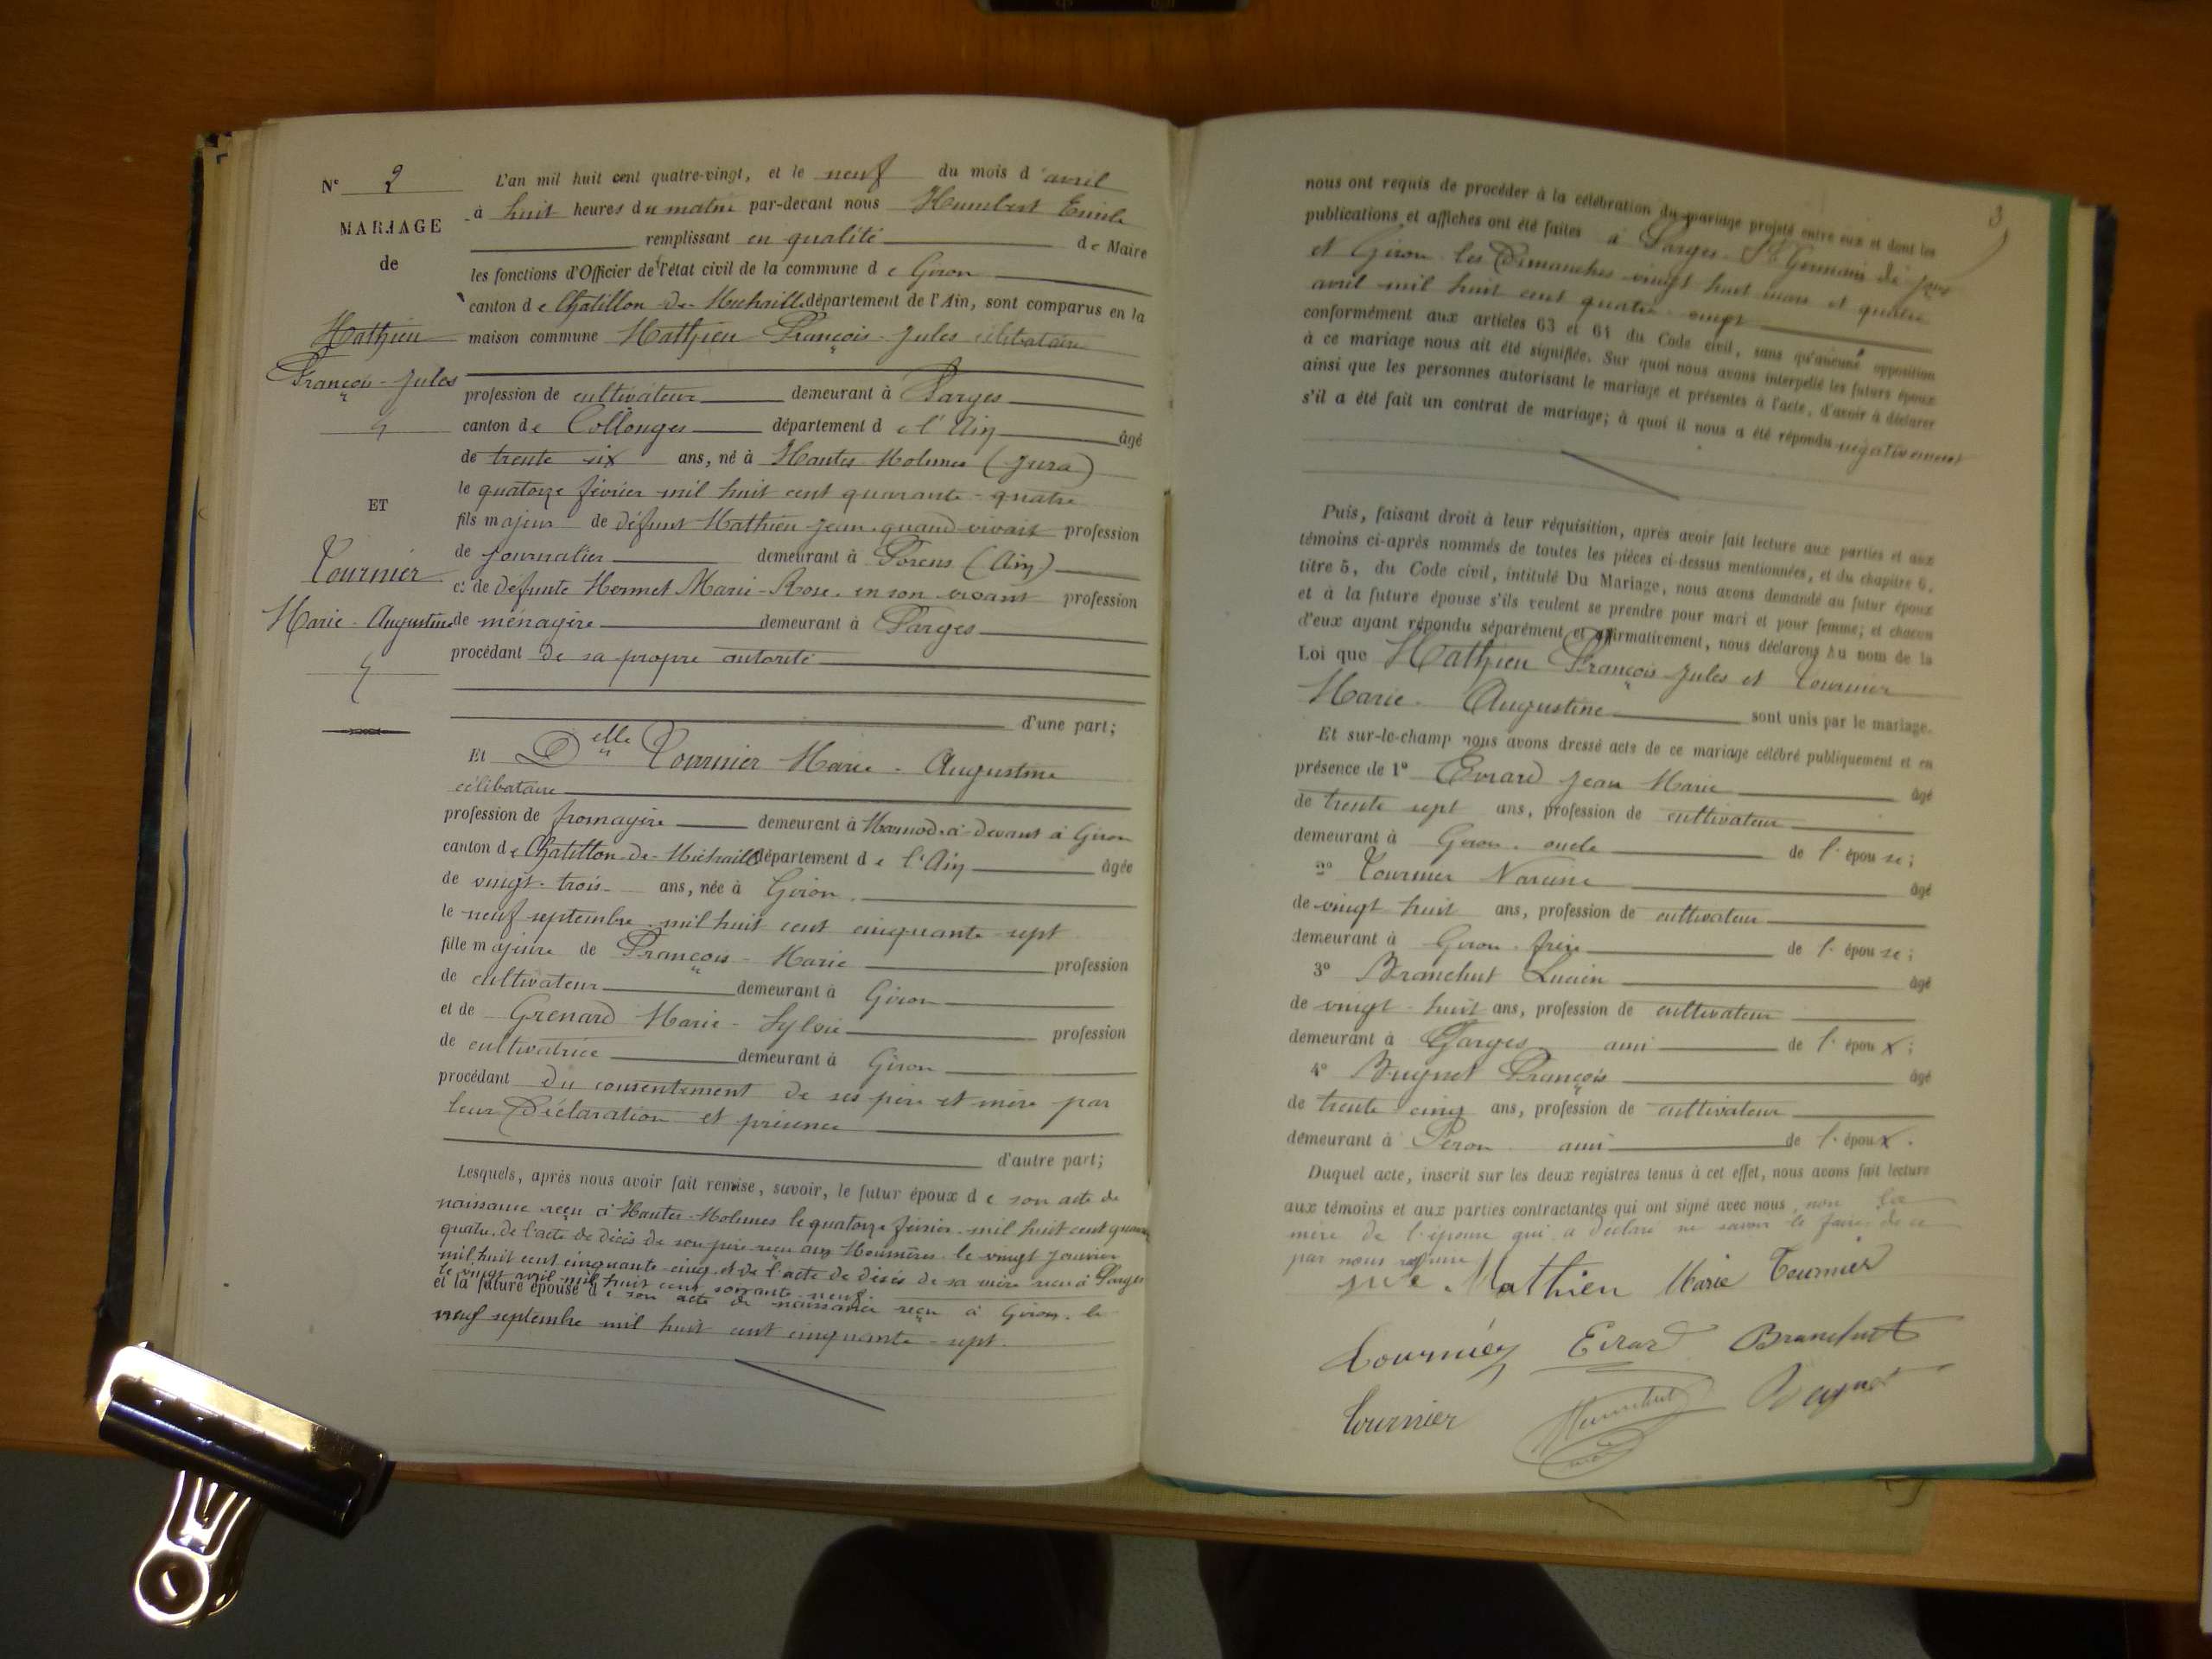 Nº 2
MARIAGE
de
Mathieu
François-Jules
ET
Tournier
Marie-Augustine
L'an mil huit cent quatre-vingt, et le neuf du mois d'avril
à huit heures du matin par-devant nous Humbert Emile
remplissant en qualité de Maire
les fonctions d'Officier de l'état civil de la commune de Giron
canton de Chatillon-de-Michaille département de l'Ain, sont comparus en la
maison commune Mathieu François-Jules célibataire
profession de cultivateur demeurant à Farges
canton de Collonges département de l'Ain âgé
de trente six ans, né à Hautes Molunes (Jura)
le quatorze février mil huit cent quarante-quatre
fils majeur de défunt Mathieu Jean quand vivait profession
de journalier demeurant à Forens (Ain)
et de défunte Hermet Marie-Rose en son vivant profession
de ménagère demeurant à Farges
procédant de sa propre autorité
d'une part;
Et Delle Tournier Marie-Augustine
célibataire
profession de fromagère demeurant à ci-devant à Giron
canton de Chatillon-de-Michaille département de l'Ain âgée
de vingt-trois ans, née à Giron
le neuf septembre mil huit cent cinquante-sept
fille majeure de François-Marie profession
de cultivateur demeurant à Giron
et de Grenard Marie-Sylvie profession
de cultivatrice demeurant à Giron
procédant du consentement de ses père et mère par
leur Déclaration et présence
d'autre part;
Lesquels, après nous avoir fait remise, savoir, le futur époux de son acte de
naissance reçu à Hautes-Molunes le quatorze février mil huit cent quarante
quatre, de l'acte de décès de son père reçu aux Moussières le vingt janvier
mil huit cent cinquante-cinq et de l'acte de décès de sa mère reçu à Farges
le vingt avril mil huit cent soixante neuf.
et la future épouse de son acte de naissance reçu à Giron le
neuf septembre mil huit cent cinquante-sept.
3
nous ont requis de procéder à la célébration du mariage projeté entre eux et dont les
publications et affiches ont été faites à Farges St Germain de Joux
et Giron les Dimanches vingt huit mars et quatre
avril mil huit cent quatre-vingt
conformément aux articles 63 et 64 du Code civil, sans qu'aucune opposition
à ce mariage nous ait été signifiée. Sur quoi nous avons interpellé les futurs époux
ainsi que les personnes autorisant le mariage et présentes à l'acte, d'avoir à déclarer
s'il a été fait un contrat de mariage; à quoi il nous a été répondu négativement
Puis, faisant droit à leur réquisition, après avoir fait lecture aux parties et aux
témoins ci-après nommés de toutes les pièces ci-dessus mentionnées, et du chapitre 6,
titre 5, du Code civil, intitulé Du Mariage, nous avons demandé au futur époux
et à la future épouse s'ils veulent se prendre pour mari et pour femme; et chacun
d'eux ayant répondu séparément et affirmativement, nous déclarons au nom de la
Loi que Mathieu François-Jules et Tournier
Marie-Augustine sont unis par le mariage.
Et sur-le-champ nous avons dressé acte de ce mariage célébré publiquement et en
présence de 1º Evrard Jean Marie âgé
de trente sept ans, profession de cultivateur
demeurant à Giron oncle de l'épouse;
2º Tournier Narcisse âgé
de vingt huit ans, profession de cultivateur
demeurant à Giron frère de l'épouse;
3º Branchut Lucien âgé
de vingt-huit ans, profession de cultivateur
demeurant à Farges ami de l'époux;
4º Buynet François âgé
de trente cinq ans, profession de cultivateur
demeurant à Péron ami de l'époux.
Duquel acte, inscrit sur les deux registres tenus à cet effet, nous avons fait lecture
aux témoins et aux parties contractantes qui ont signé avec nous, non la
mère de l'épouse qui a déclaré ne savoir le faire de ce
par nous requise
Mathieu Marie Tournier
Tournier Evrard Branchut
Tournier Humbert